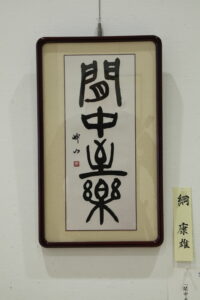 閒中至樂
綱 康雄